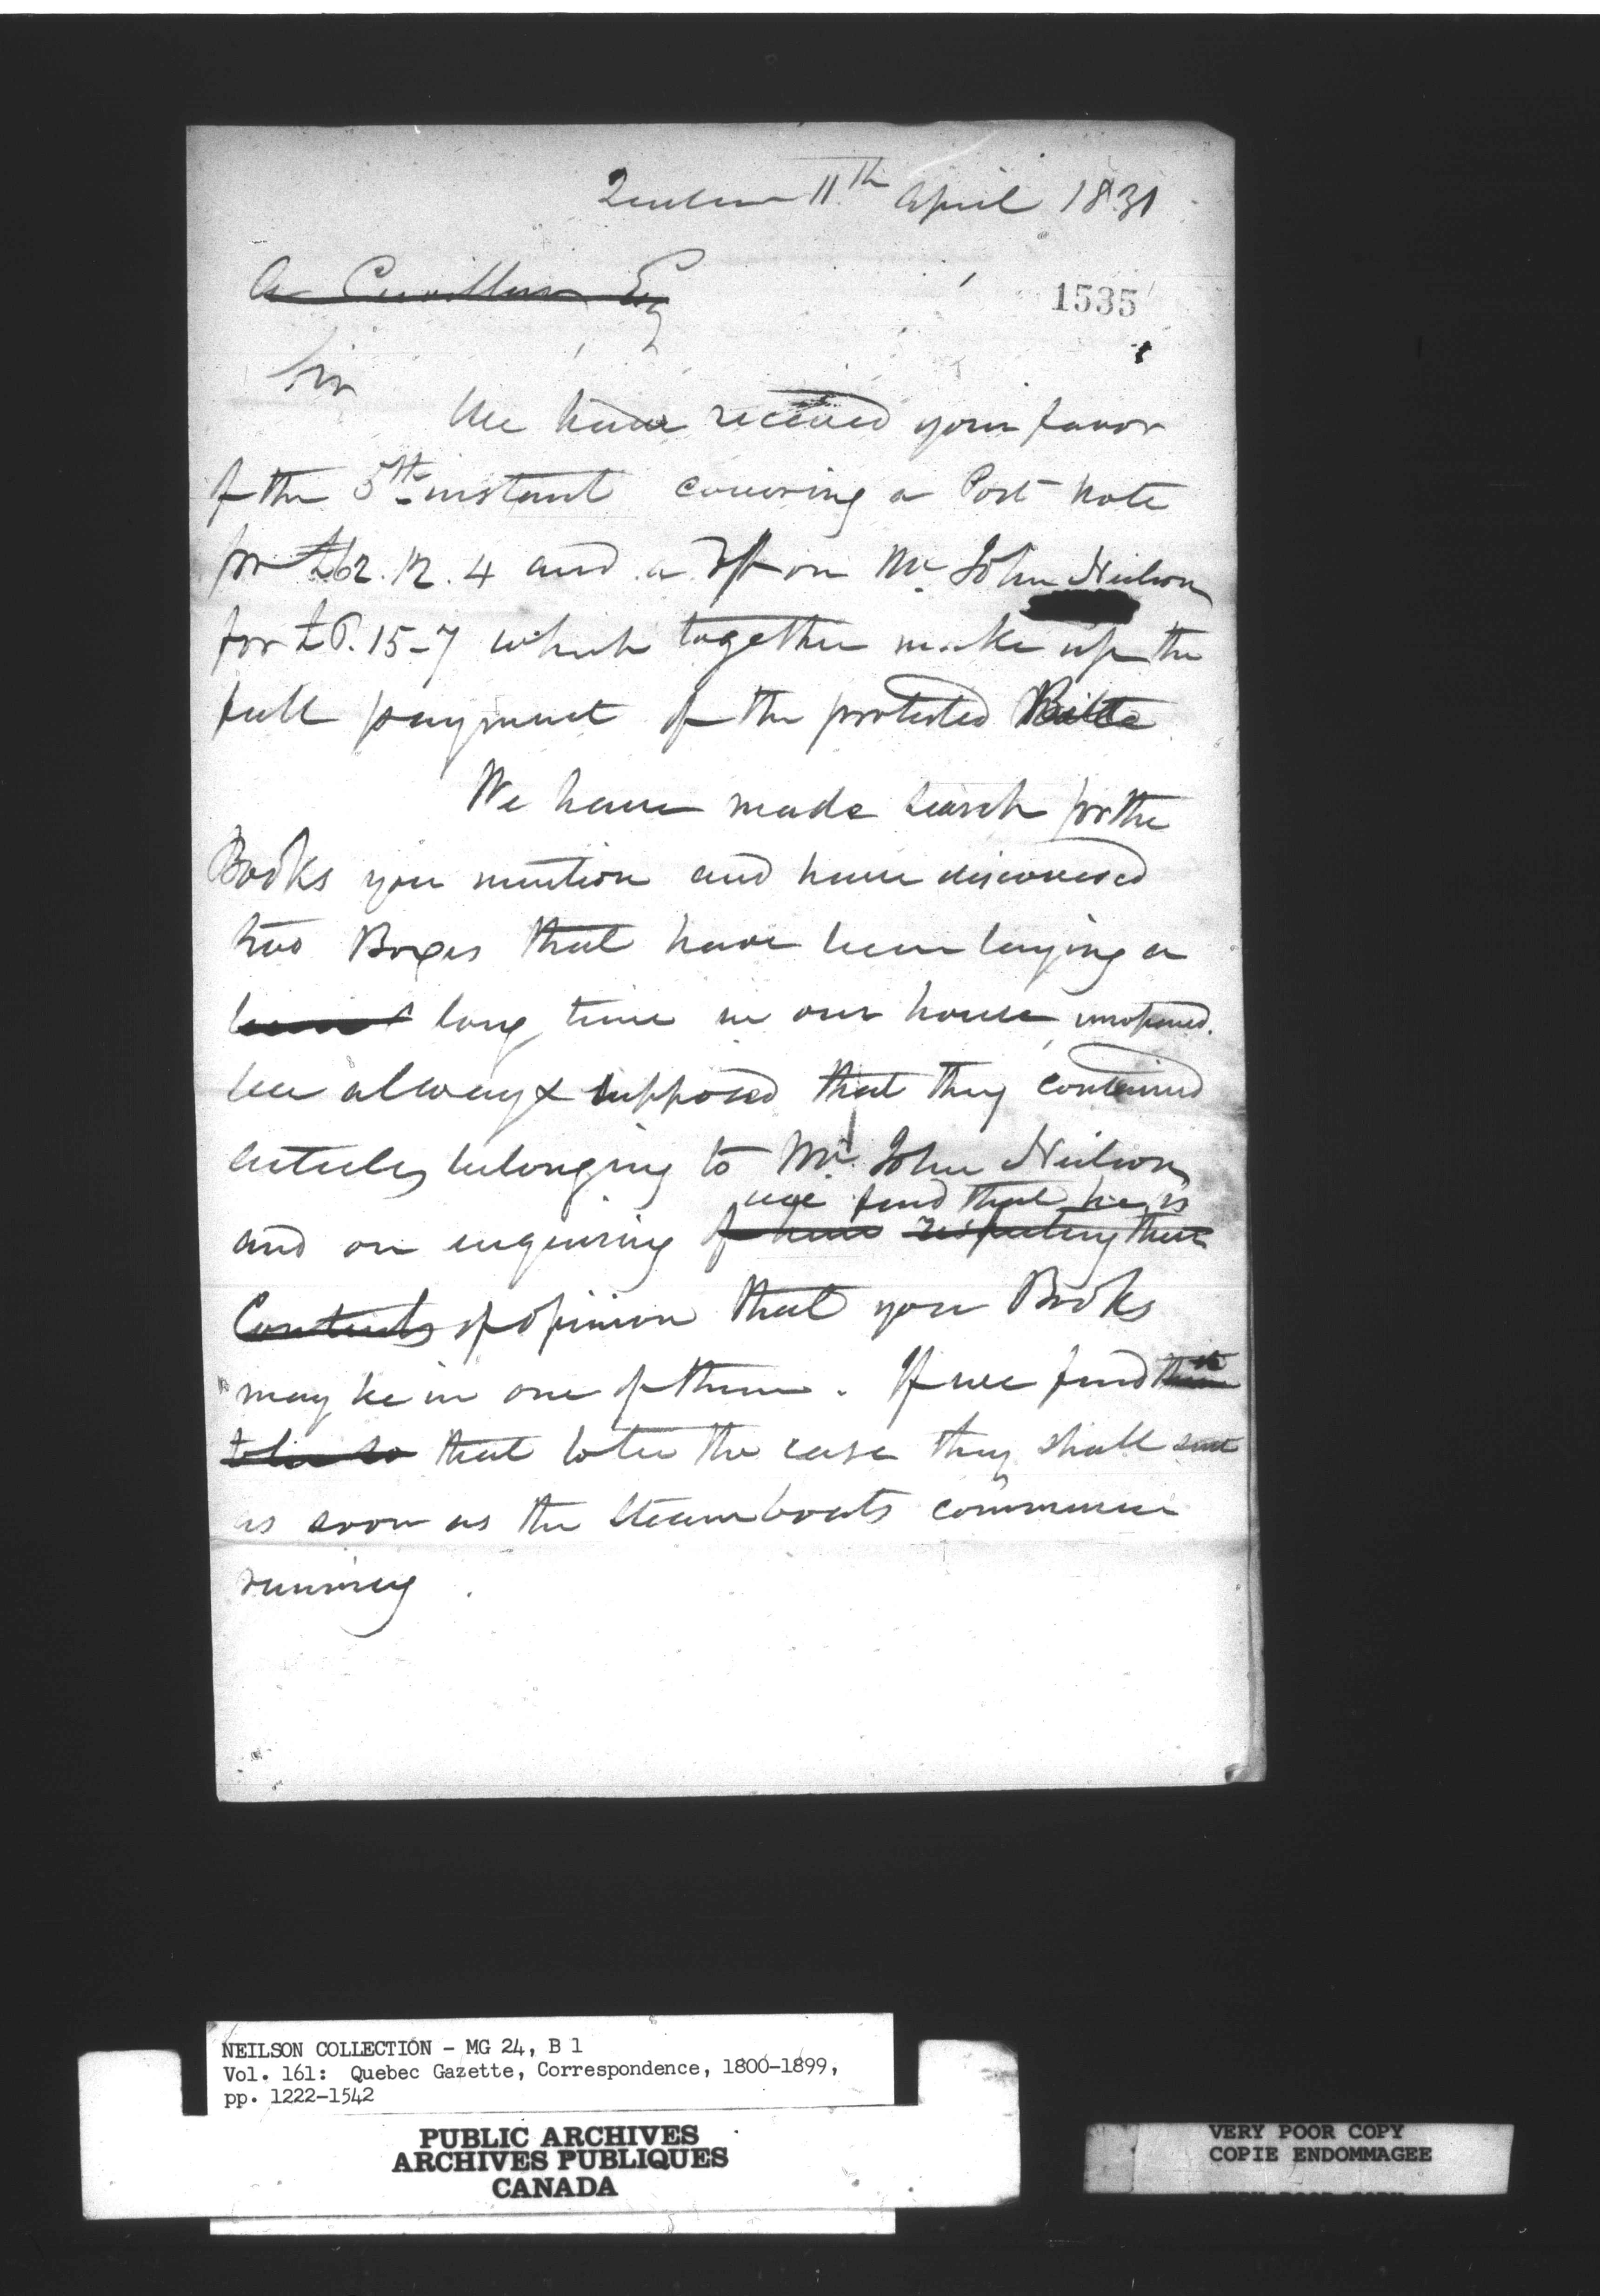 Quebec 11th April 1831
A Cuvillier Esq
1535
Sir
We have received your favor
of the 5th instant covering a Post Note
for £62.12.4 and a Dft on Mr. John Neilson
for £6.15-7 which together make up the
full payment of the protested Bill
We have made search for the
Books you mention and have discovered
two Boxes that have been laying a
long time in our house unopened.
We always supposed that they contained
articles belonging to Mr. John Neilson
we find that he is
and on enquiring of him respecting their
Contents of opinion that your Books
may be in one of them. If we find
to be so that to be the case they shall sent
as soon as the Steamboats commence
running.
NEILSON COLLECTION - MG 24, B 1
Vol. 161: Quebec Gazette, Correspondence, 1800-1899,
pp. 1222-1542
PUBLIC ARCHIVES
ARCHIVES PUBLIQUES
CANADA
VERY POOR COPY
COPIE ENDOMMAGEE